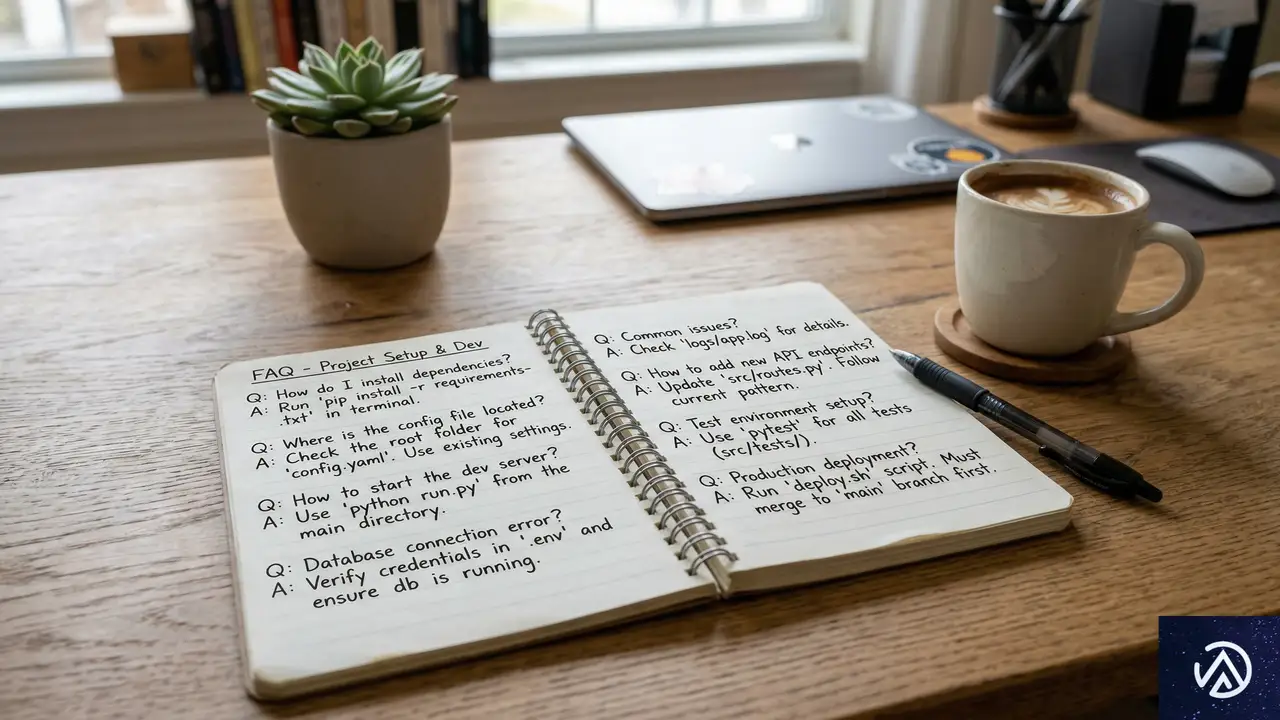 FAQ - Project Setup & Dev
Q: How do I install dependencies?
A: Run 'pip install -r requirements-
.txt' in terminal.
Q: Where is the config file located?
A: Check the root folder for
'config.yaml'. Use existing settings.
Q: How to start the dev server?
A: Use 'python run.py' from the
main directory.
Q: Database connection error?
A: Verify credentials in '.env' and
ensure db is running.
Q: Common issues?
A: Check 'logs/app.log' for details.
Q: How to add new API endpoints?
A: Update 'src/routes.py'. Follow
current pattern.
Q: Test environment setup?
A: Use 'pytest' for all tests
(src/tests/).
Q: Production deployment?
A: Run 'deploy.sh' script. Must
merge to 'main' branch first.